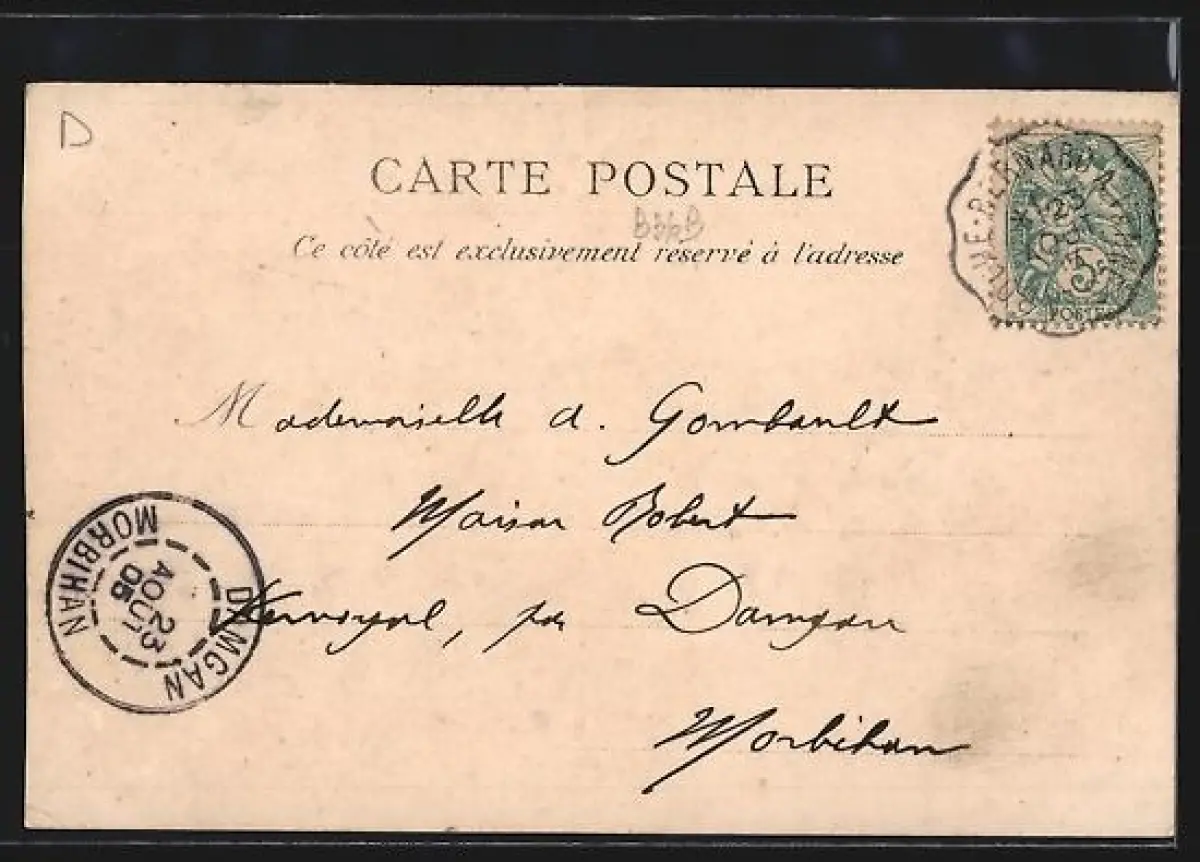 D
CARTE POSTALE
B36B
Ce côté est exclusivement réservé à l'adresse
POSTES
Mademoiselle A. Gombault
Maison Robert
Kervoyal, par Damgan
Morbihan
DAMGAN
23
AOUT
05
MORBIHAN